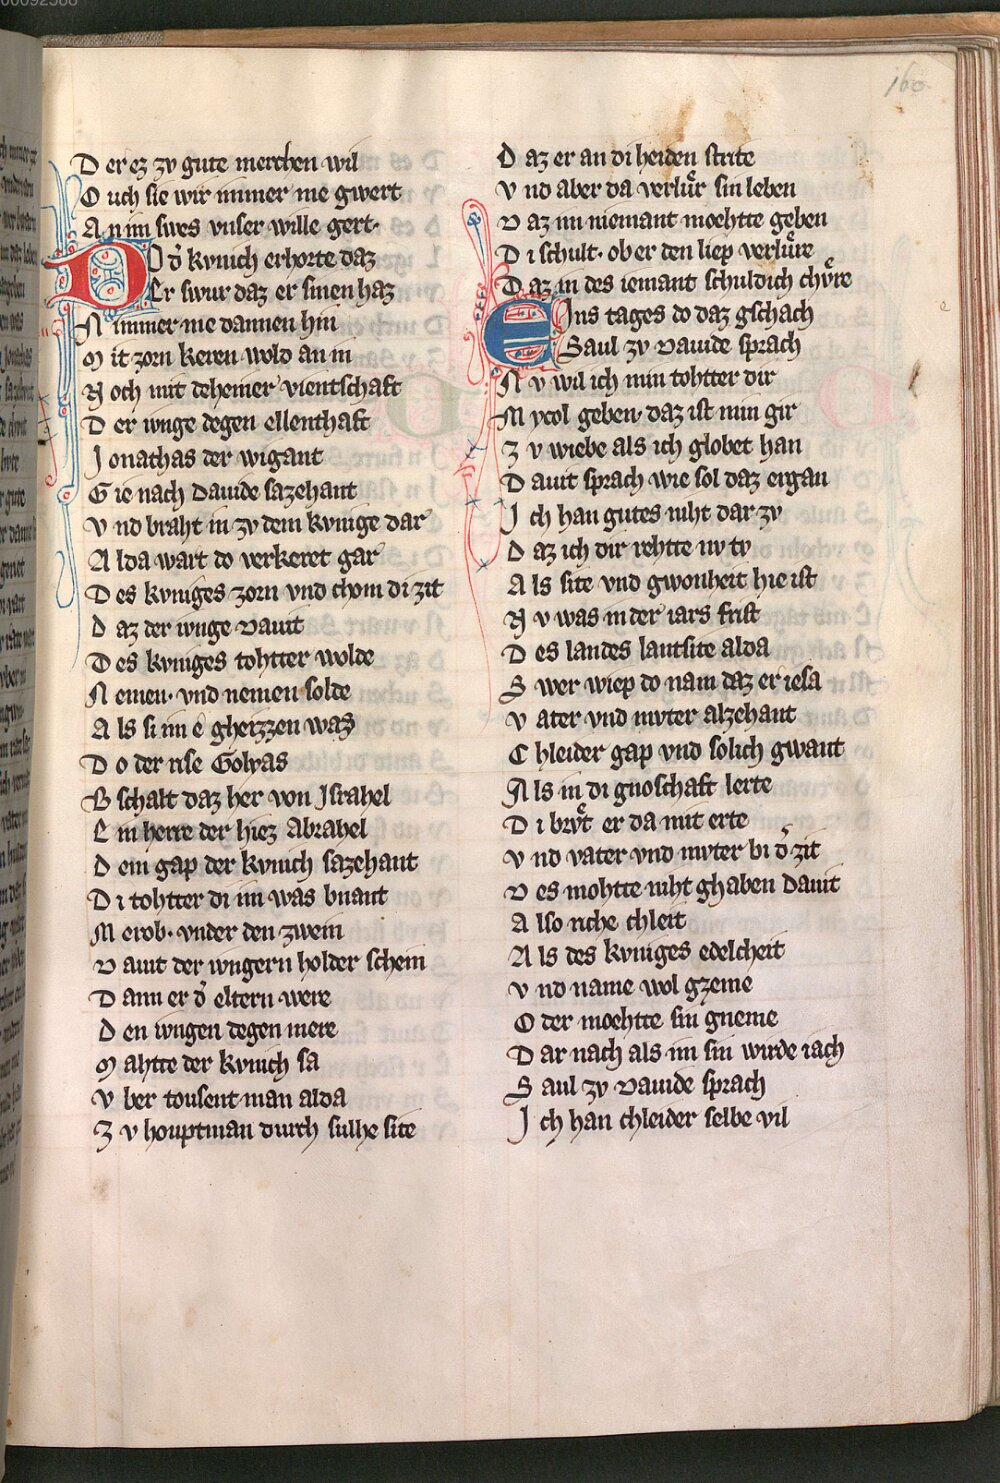 00092388
160
D er ez zv gute merchen wil
O uch sie wir immer me gwert
A n im swes vnser wille gert·
DO d͛ kvnich erhorte daz
Er swur daz er sinen haz
N immer me dannen hin
M it zorn keren wold an in
N och mit deheiner vientschaft
D er iunge degen ellenthaft
J onathas der wigant
G ie nach dauide sazehant
V nd braht in zv dem kvnige dar
A lda wart do verkeret gar
D es kvniges zorn vnd chom di zit
D az der iunge Dauit
D es kvniges tohtter wolde
N emen· vnd nemen solde
A ls si im e gheizzen was
D o der rise Golyas
B schalt daz her von Jsrahel
E in herre der hiez Abrahel
D em gap der kvnich sazehant
D i tohtter di im was bnant
M erob· vnder den zwein
D auit der iungern holder schein
D ann er d͛ eltern were
D en iungen degen mere
M ahtte der kvnich sa
V ber tousent man alda
Z v houptman durch sulhe site
D az er an di heiden strite
V nd aber da verlůr sin leben
D az im niemant moehtte geben
D i schult· ob er den liep verlůre
D az in des iemant schuldich chv̊re
EIns tages do daz gschach
Saul zv Dauide sprach
N v wil ich min tohtter dir
M ycol geben· daz ist min gir
Z v wiebe als ich globet han
D auit sprach wie sol daz ergan
J ch han gutes niht dar zv
D az ich dir rehtte nv tv
A ls site vnd gwonheit hie ist
N v was in der iars frist
D es landes lantsite alda
S wer wiep do nam daz er iesa
V ater vnd mvter alzehant
C hleider gap vnd solich gwant
A ls in di gnoschaft lerte
D i brv̊t er da mit erte
V nd vater vnd mvter bi d͛ zit
D es mohtte niht ghaben Dauit
A lso riche chleit
A ls des kvniges edelcheit
V nd name wol gzeme
O der moehtte sin gneme
D ar nach als im sin wirde iach
S aul zv Dauide sprach
J ch han chleider selbe vil